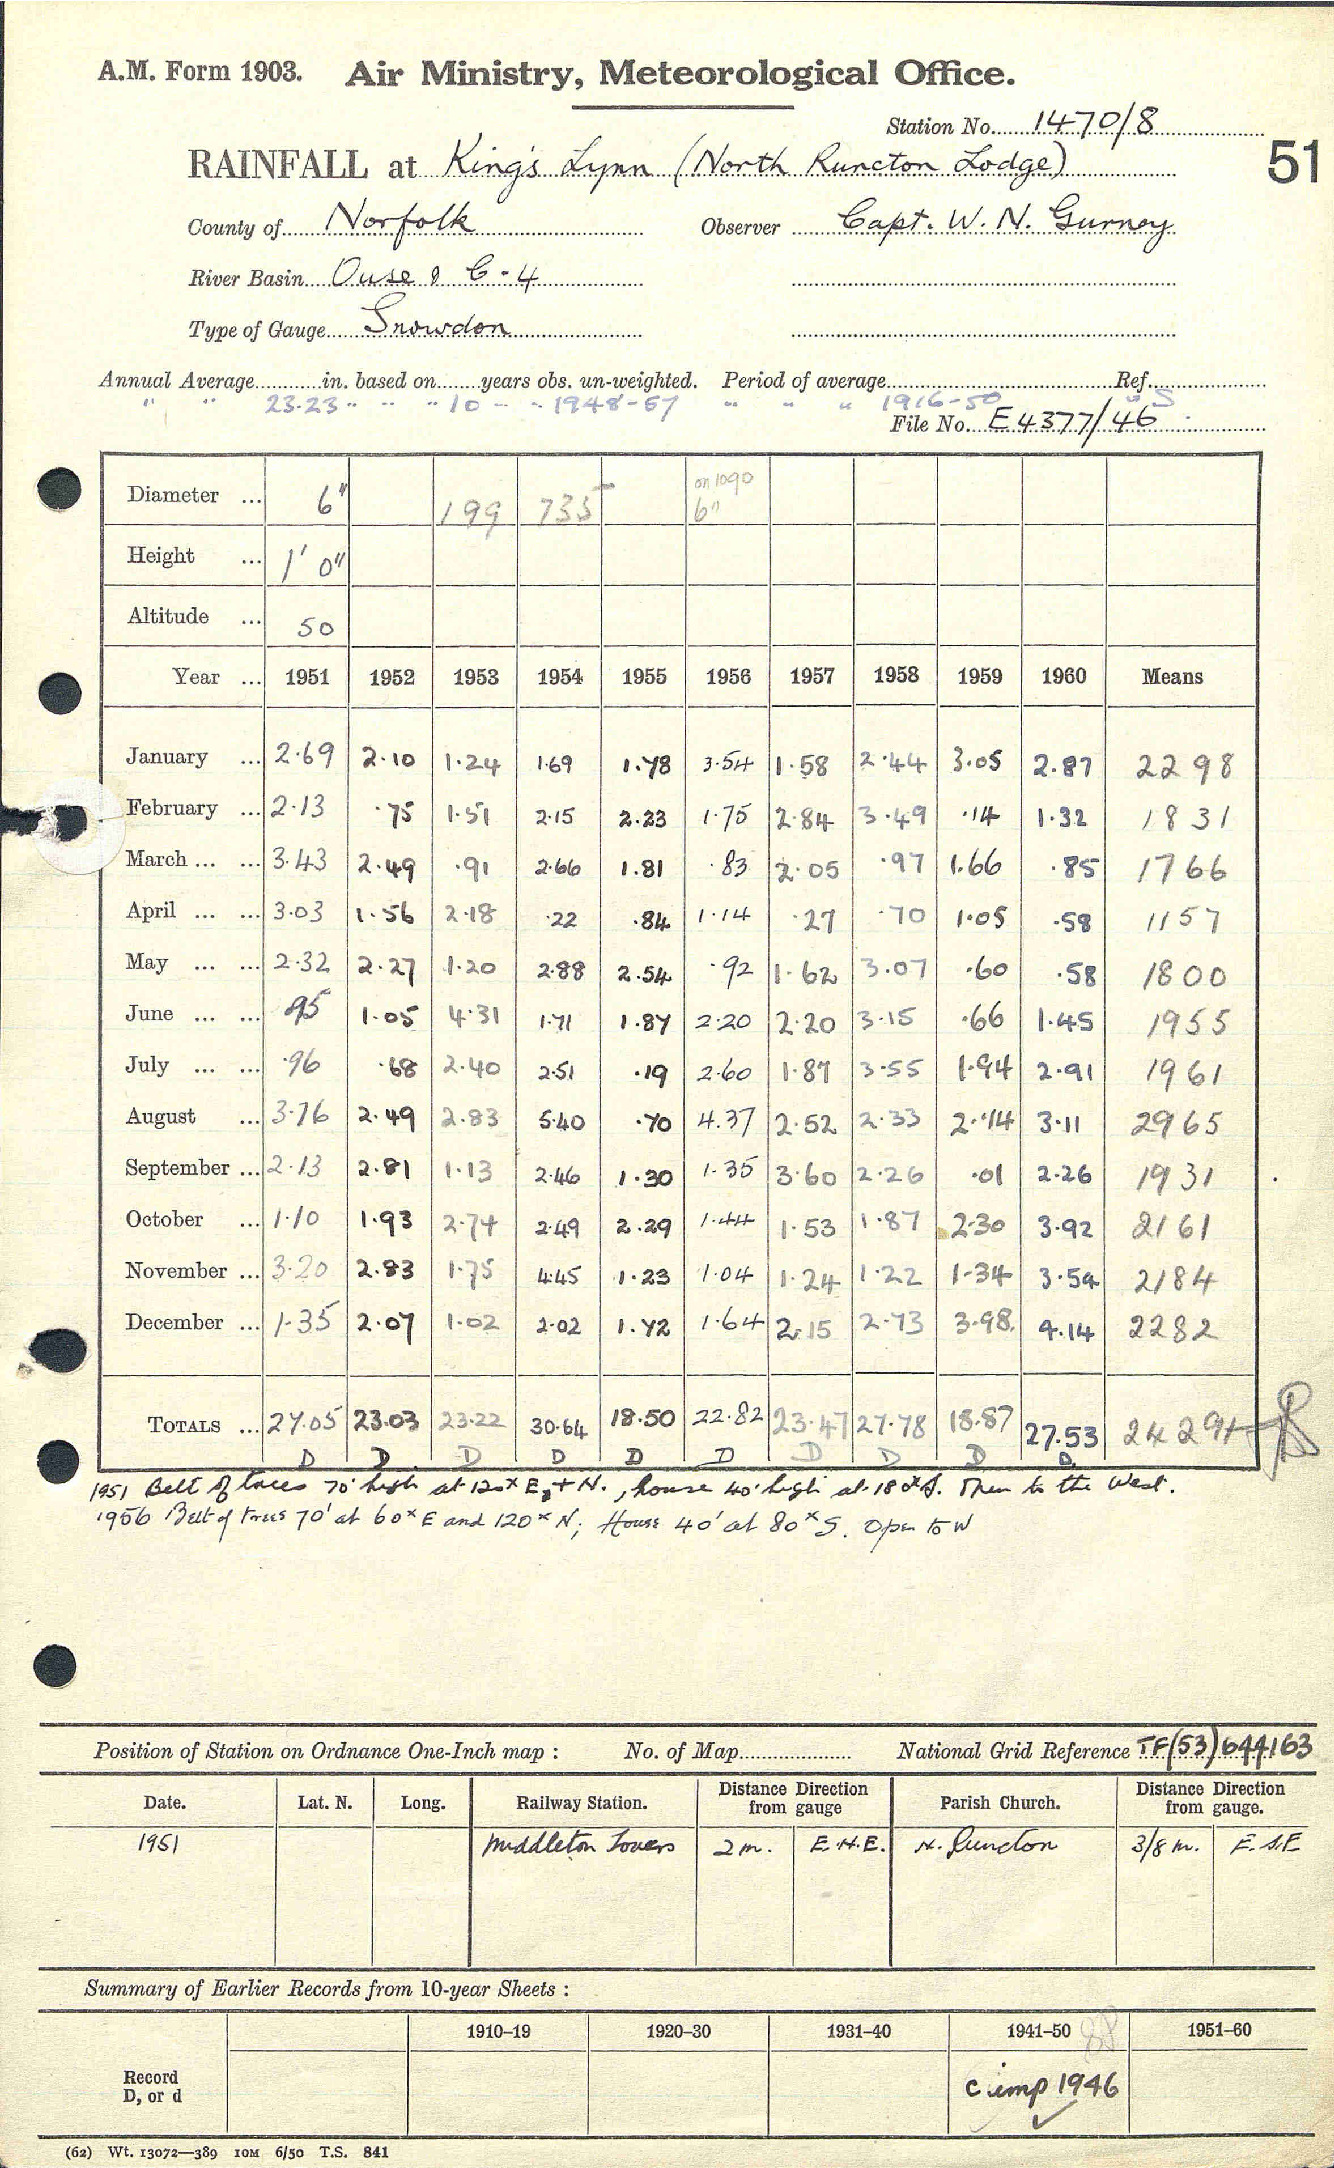 A.M. Form 1903. Air Ministry, Meteorological Office.
Station No. 1470/8
51
RAINFALL at King's Lynn (North Runcton Lodge)
County of Norfolk Observer Capt. W. N. Gurney
River Basin Ouse & C-4
Type of Gauge Snowdon
Annual Average in. based on years obs. un-weighted. Period of average Ref.
" " 23.23 " " " 10 " " 1948-57 " " " 1916-50 " S.
File No. E4377/46
on 1090
Diameter ... 6" 199 735 6"
Height ... 1' 0"
Altitude ... 50
Year ... 1951 1952 1953 1954 1955 1956 1957 1958 1959 1960 Means
January ... 2.69 2.10 1.24 1.69 1.78 3.54 1.58 2.44 3.05 2.87 2298
February ... 2.13 .75 1.51 2.15 2.23 1.75 2.84 3.49 .14 1.32 1831
March ... ... 3.43 2.49 .91 2.66 1.81 .83 2.05 .97 1.66 .85 1766
April ... ... 3.03 1.56 2.18 .22 .84 1.14 .27 .70 1.05 .58 1157
May ... ... 2.32 2.27 1.20 2.88 2.54 .92 1.62 3.07 .60 .58 1800
June ... ... .95 1.05 4.31 1.71 1.87 2.20 2.20 3.15 .66 1.45 1955
July ... ... .96 .68 2.40 2.51 .19 2.60 1.87 3.55 1.94 2.91 1961
August ... 3.76 2.49 2.83 5.40 .70 4.37 2.52 2.33 2.14 3.11 2965
September ... 2.13 2.81 1.13 2.46 1.30 1.35 3.60 2.26 .01 2.26 1931
October ... 1.10 1.93 2.74 2.49 2.29 1.44 1.53 1.87 2.30 3.92 2161
November ... 3.20 2.83 1.75 4.45 1.23 1.04 1.24 1.22 1.34 3.54 2184
December ... 1.35 2.07 1.02 2.02 1.72 1.64 2.15 2.73 3.98 4.14 2282
TOTALS ... 27.05 23.03 23.22 30.64 18.50 22.82 23.47 27.78 18.87 27.53 24291
D D D D D D D D D D
1951 Belt of trees 70' high at 120x E, + N., house 40' high at 180x S. Open to the West.
1956 Belt of trees 70' at 60x E and 120x N; House 40' at 80x S. Open to W
Position of Station on Ordnance One-Inch map : No. of Map National Grid Reference TF(53)644163
Date. Lat. N. Long. Railway Station. Distance Direction from gauge Parish Church. Distance Direction from gauge.
1951 Middleton Towers 2 m. E.N.E. N. Runcton 3/8 m. E.S.E
Summary of Earlier Records from 10-year Sheets :
1910–19 1920–30 1931–40 1941–50 1951–60
Record
D, or d
C imp 1946
(62) Wt. 13072—389 10M 6/50 T.S. 841